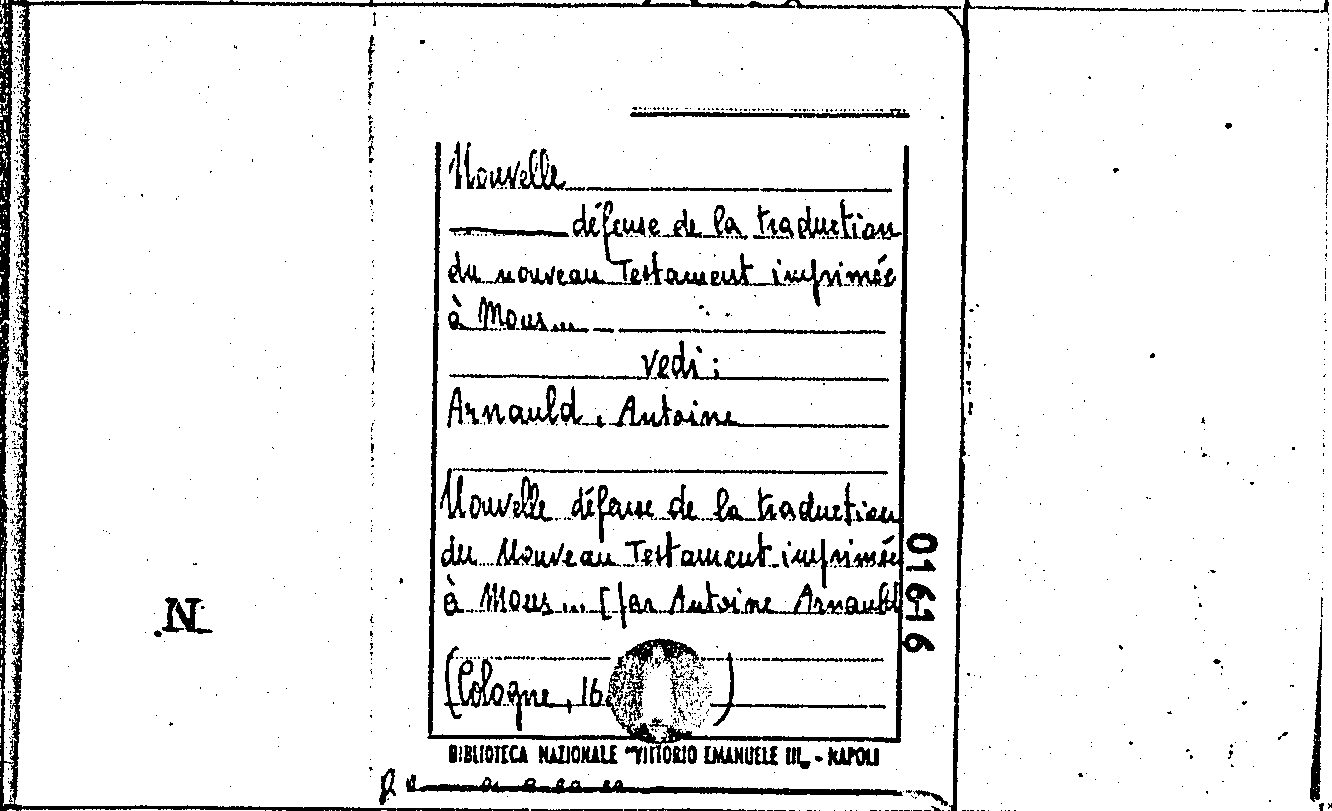 Nouvelle
défense de la traduction
du nouveau Testament imprimée
à Mons...
vedi:
Arnauld, Antoine
Nouvelle défense de la traduction
du Nouveau Testament imprimée
à Mons... [par Antoine Arnauld
(Cologne, 16 )
BIBLIOTECA NAZIONALE "VITTORIO EMANUELE III„ - NAPOLI
01616
N